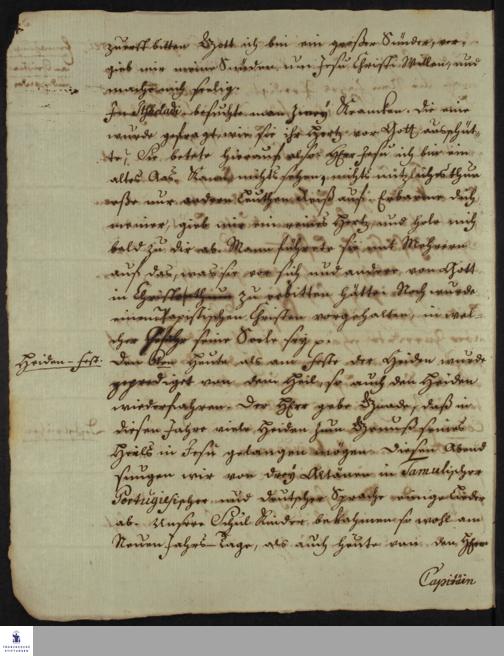 zuerst bitten Gott ich bin ein großer Sünder, ver-
gieb mir meine Sünden, um Jesu Christi Willen, und
mache mich seelig.
In besuchte man zwey Krancken. Die eine
wurde gefragt, wie sie ihr Hertz vor Gott ausschüt-
te? Sie betete hierauf also: HErr Jesu ich bin ein
altes Aas. Kann nichts sehen, nichts
nur andern Leuthen auf. Erbarme dich
meiner, gieb mir ein reines Hertz, und hole mich
bald zu dir ab. Mann führete sie mit Mehrern
auf das, was sie vor sich und andere von Gott
in Christo zu erbitten hätte. Noch wurde
einem Papistischen Christen vorgehalten, in wel-
cher Gefahr seine Seele sey p.
Heiden-Fest.
Den 6ten Heute als am Feste der Heiden wurde
geprediget von dem Heil, so auch den Heiden
wiederfahren. Der HErr gebe Gnade, daß in
diesem Jahre viele Heiden zum Genuß seines
Heils in Jesu gelangen mögen. Diesen Abend
sungen wir von drey Altären in Tamulischer
Portugiesischer und deutscher Sprache einige Lieder
ab. Unsere Schul Kinder bekahmen so wohl am
Neuen Jahrs-Tage, als auch heute von dem Herrn
Capitain
FRANCKESCHE
STIFTUNGEN